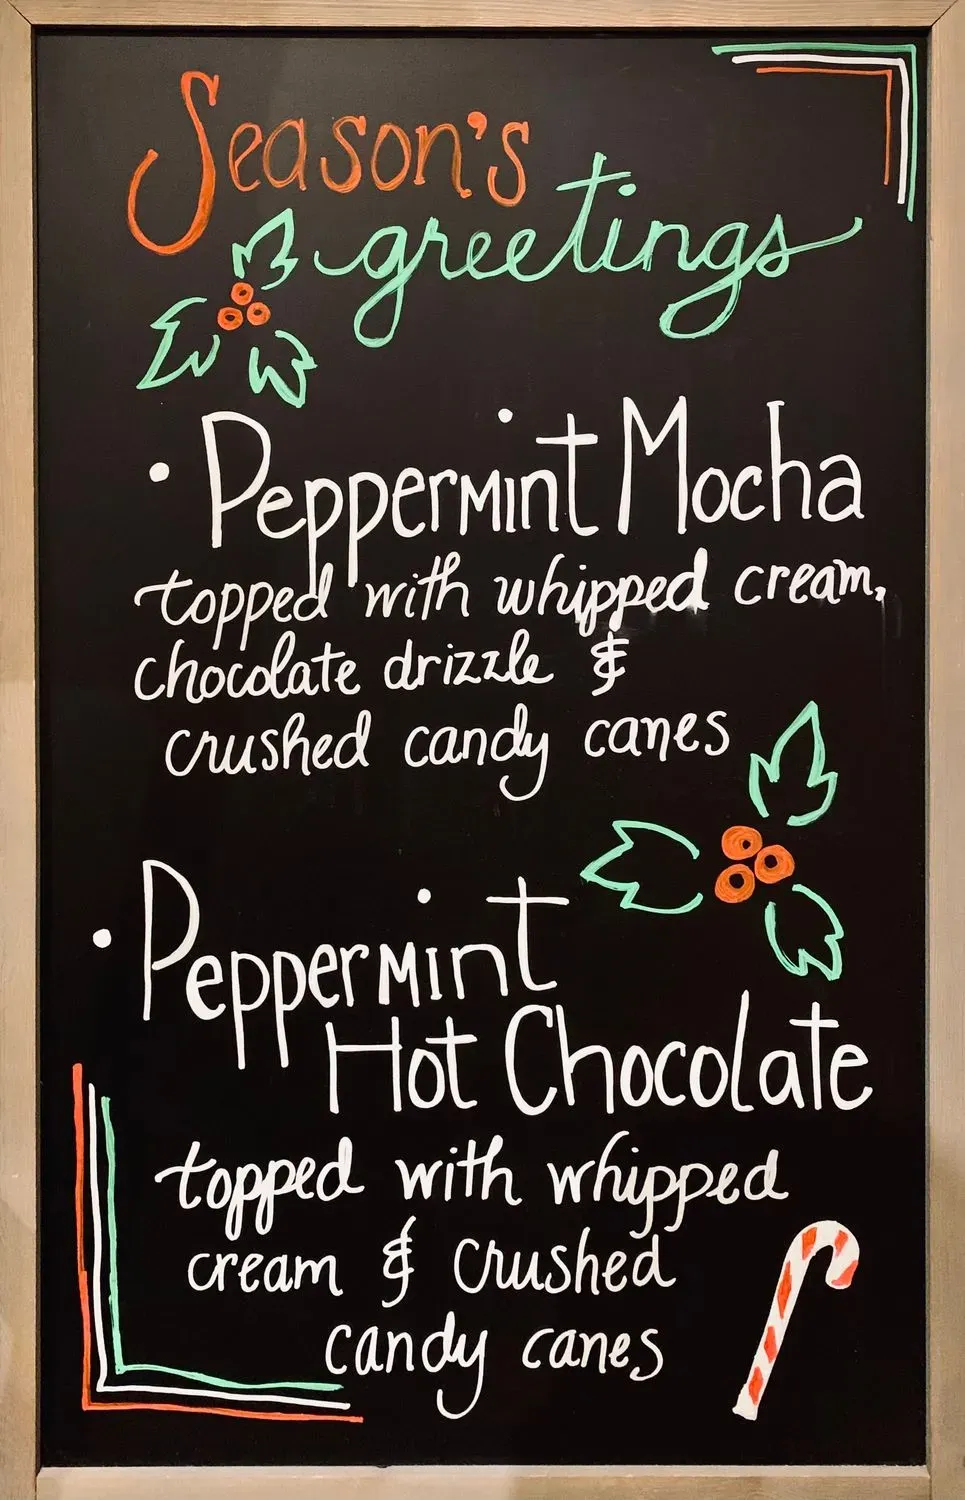 Season's
greetings
• Peppermint Mocha
topped with whipped cream,
chocolate drizzle &
crushed candy canes
• Peppermint
Hot Chocolate
topped with whipped
cream & crushed
candy canes